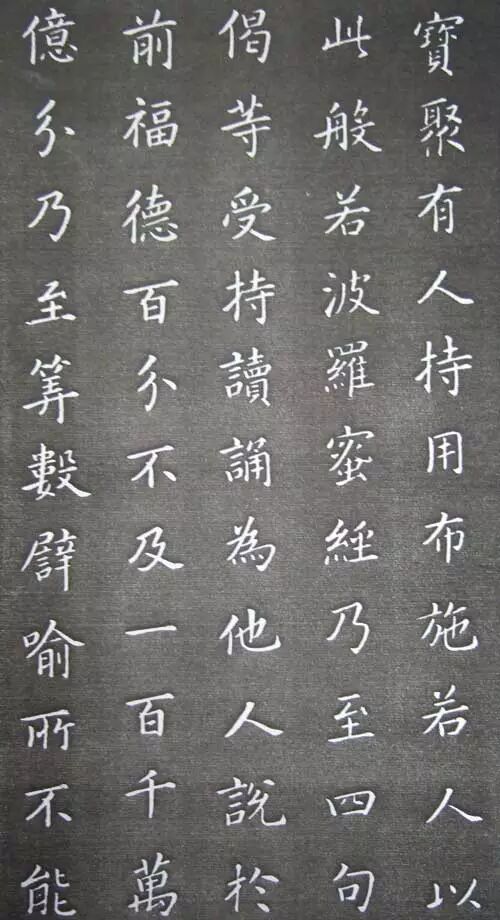 寶聚有人持用布施若人以
此般若波羅蜜經乃至四句
偈等受持讀誦為他人說於
前福德百分不及一百千萬
億分乃至筭數譬喻所不能